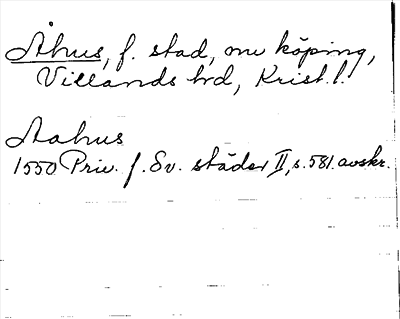 Åhus, f. stad, nu köping,
Villands hd, Krist. l.
Aahus
1550 Priv. f. Sv. städer II, s. 581. avskr.